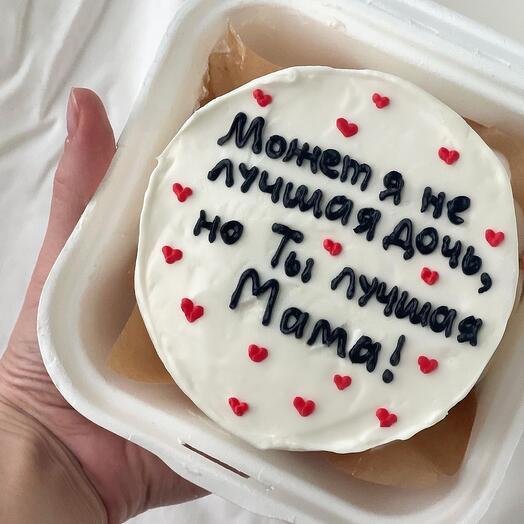 Может я не
лучшая дочь,
но Ты лучшая
Мама!